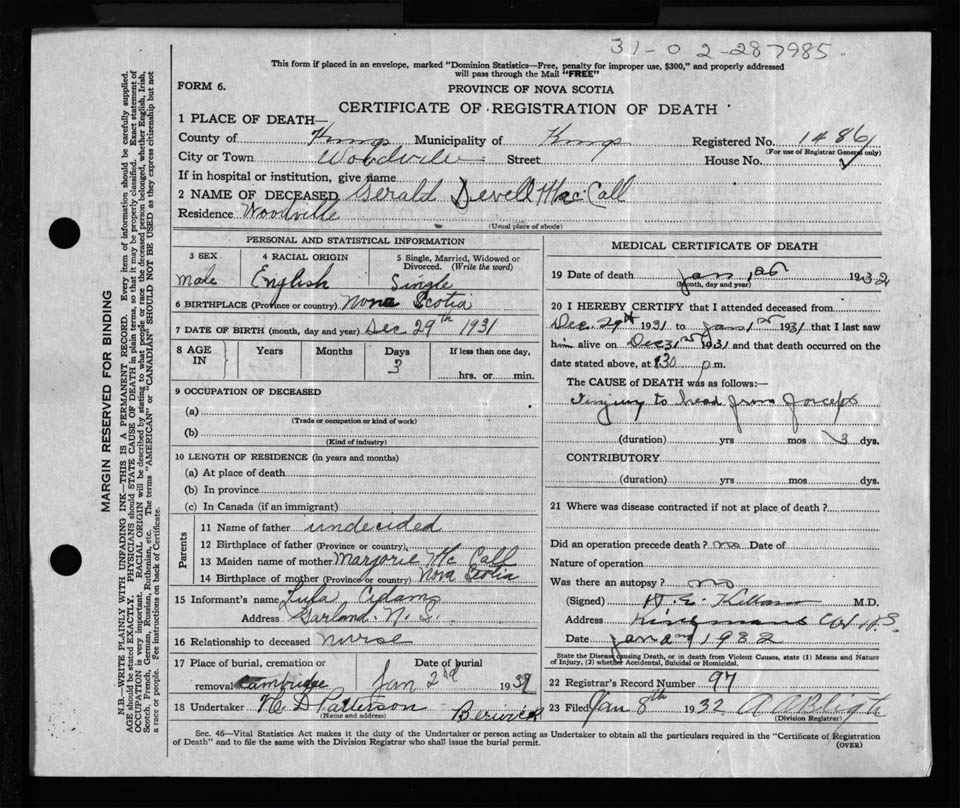 31-02-287985
This form if placed in an envelope, marked "Dominion Statistics—Free, penalty for improper use, $300," and properly addressed
will pass through the Mail "FREE"
FORM 6.
PROVINCE OF NOVA SCOTIA
CERTIFICATE OF REGISTRATION OF DEATH
1 PLACE OF DEATH—
County of Kings Municipality of Kings Registered No. 1486
(For use of Registrar General only)
City or Town Woodville Street House No.
If in hospital or institution, give name
2 NAME OF DECEASED Gerald Devell MacCall
Residence Woodville
(Usual place of abode)
PERSONAL AND STATISTICAL INFORMATION
3 SEX 4 RACIAL ORIGIN 5 Single, Married, Widowed or Divorced. (Write the word)
Male English Single
6 BIRTHPLACE (Province or country) Nova Scotia
7 DATE OF BIRTH (month, day and year) Dec 29th 1931
8 AGE IN Years Months Days If less than one day,
3 hrs. or min.
9 OCCUPATION OF DECEASED
(a)
(Trade or occupation or kind of work)
(b)
(Kind of industry)
10 LENGTH OF RESIDENCE (in years and months)
(a) At place of death
(b) In province
(c) In Canada (if an immigrant)
Parents
11 Name of father undecided
12 Birthplace of father (Province or country)
13 Maiden name of mother Marjorie McCall
14 Birthplace of mother (Province or country) Nova Scotia
15 Informant's name Lula Adams
Address Garland. N. S.
16 Relationship to deceased nurse
17 Place of burial, cremation or Date of burial
removal Cambridge Jan 2nd 1932
18 Undertaker N. D Patterson Berwick
(Name and address)
MEDICAL CERTIFICATE OF DEATH
19 Date of death Jan 1st 1932
(Month, day and year)
20 I HEREBY CERTIFY that I attended deceased from
Dec. 29th 1931 to Jan 1st 1931 that I last saw
him alive on Dec 31st 1931 and that death occurred on
date stated above, at 830 p m.
The CAUSE of DEATH was as follows:—
Injury to head from forceps
(duration) yrs mos 3 dys.
CONTRIBUTORY
(duration) yrs mos dys.
21 Where was disease contracted if not at place of death?
Did an operation precede death? no Date of
Nature of operation
Was there an autopsy? no
(Signed) M.D.
Address N.S.
Date Jan 2nd 1932
State the Disease causing Death, or in death from Violent Causes, state (1) Means and Nature
of Injury, (2) whether Accidental, Suicidal or Homicidal.
22 Registrar's Record Number 97
23 Filed Jan 8th 1932
(Division Registrar)
Sec. 46—Vital Statistics Act makes it the duty of the Undertaker or person acting as Undertaker to obtain all the particulars required in the "Certificate of Registration
of Death" and to file the same with the Division Registrar who shall issue the burial permit.
(OVER)
MARGIN RESERVED FOR BINDING
N.B.—WRITE PLAINLY WITH UNFADING INK—THIS IS A PERMANENT RECORD. Every item of information should be carefully supplied.
AGE should be stated EXACTLY. PHYSICIANS should STATE CAUSE OF DEATH in plain terms, so that it may be properly classified. Exact statement of
OCCUPATION is very important. RACIAL ORIGIN will be described by stating to what people or race the deceased person belonged, whether English, Irish,
Scotch, French, German, Russian, Ruthenian, etc. The terms "AMERICAN" or "CANADIAN" SHOULD NOT BE USED as they express citizenship but not
a race or people. Fee instructions on back of Certificate.